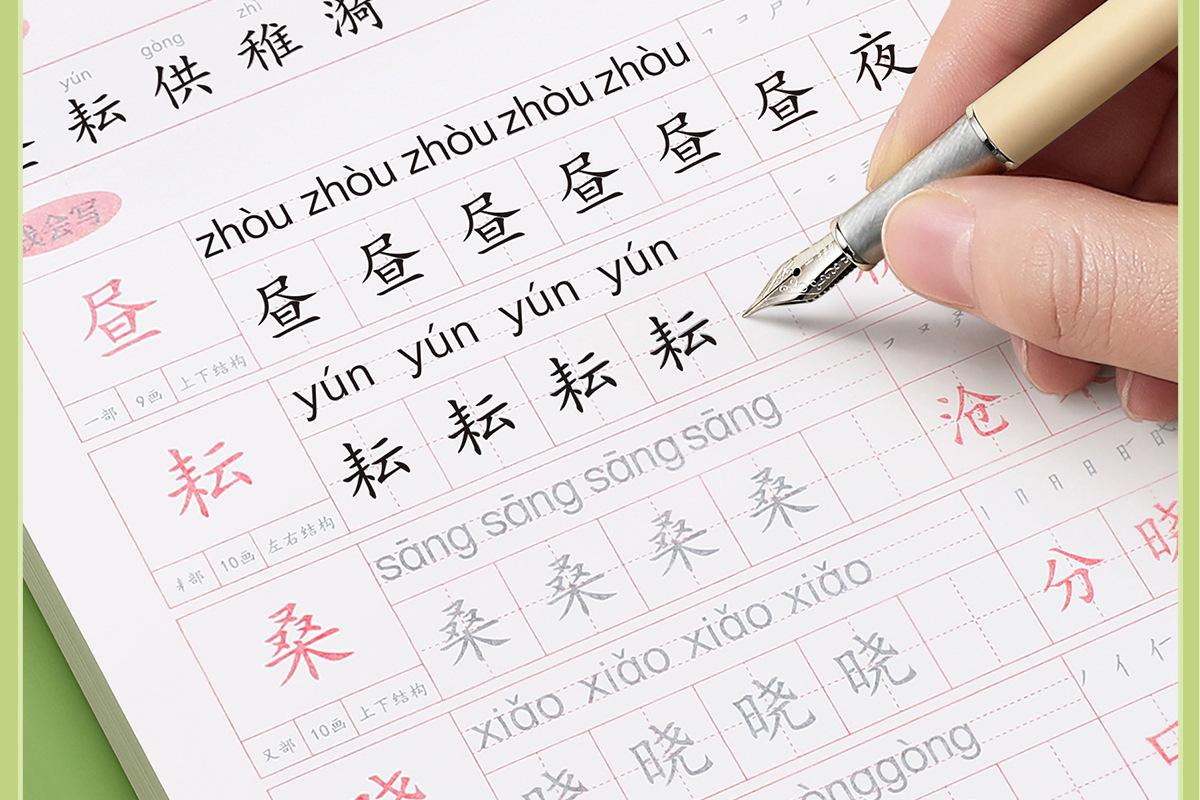 zhì
gòng
yún
耘 供 稚 漪
我会写
zhòu zhòu zhòu zhòu zhòu
昼 昼 昼 昼 昼 昼 昼 夜
一部 9画 上下结构
yún yún yún yún
耘 耘 耘 耘 耘
部 10画 左右结构
sāng sāng sāng sāng
桑 桑 桑 桑 桑 沧
又部 10画 上下结构
xiǎo xiǎo xiǎo xiǎo
晓 晓 晓 晓 分 晓
gòng